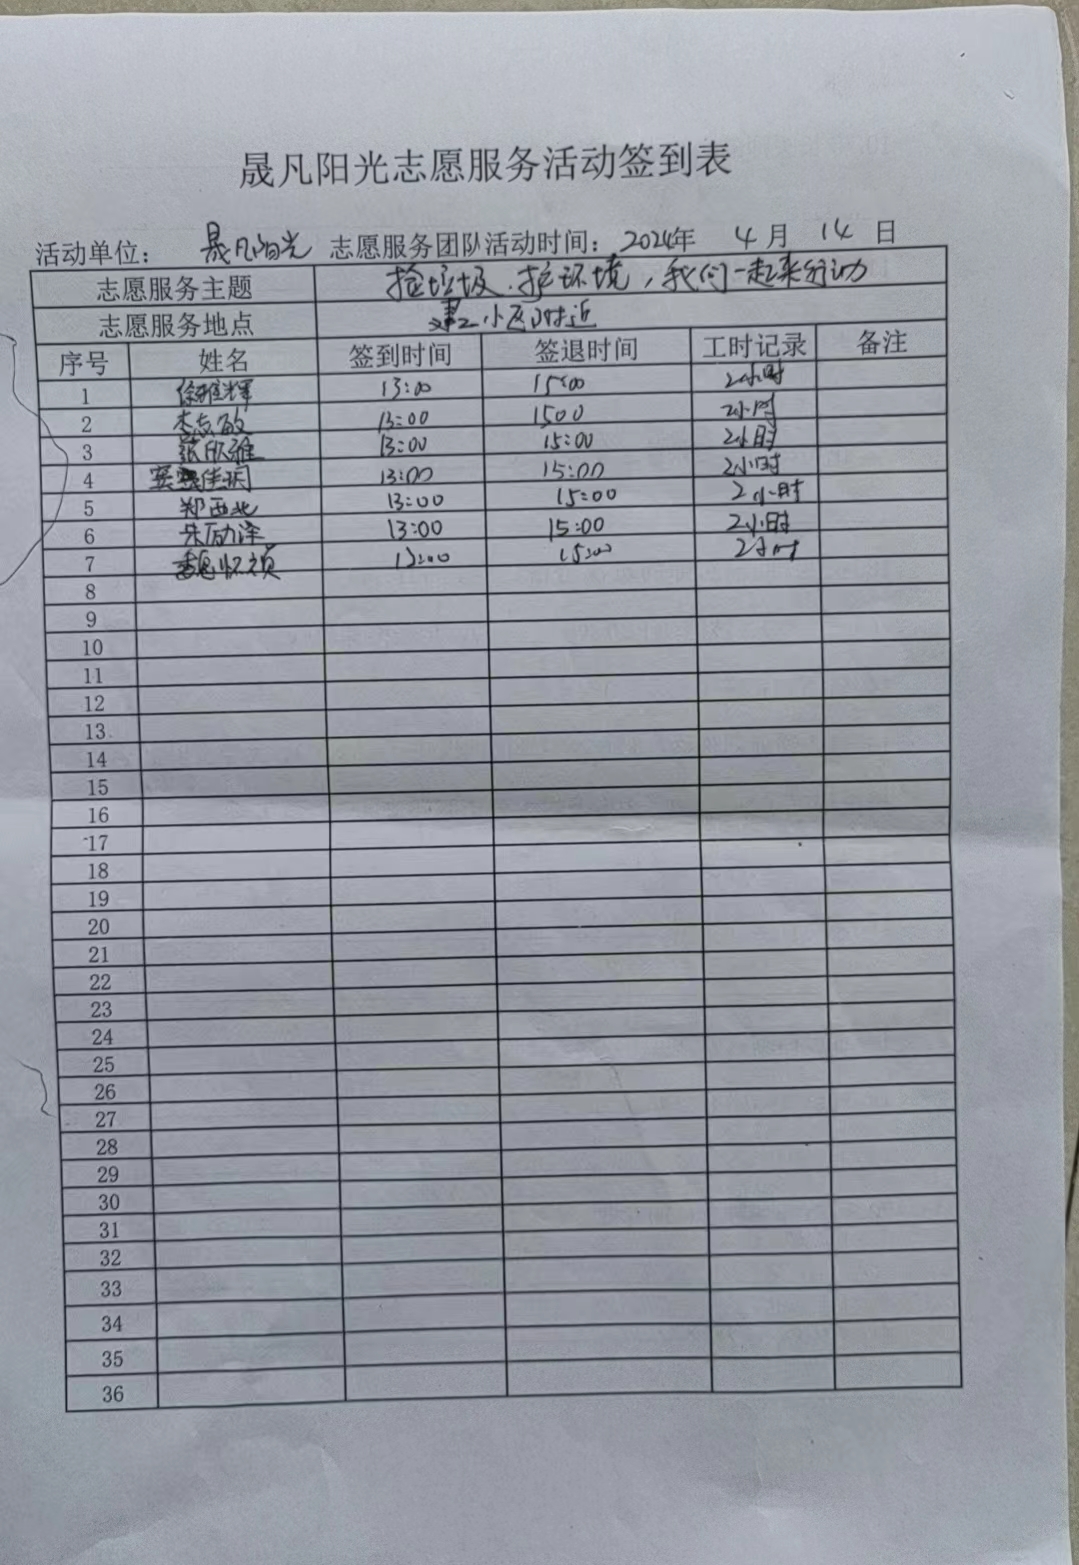 晟凡阳光志愿服务活动签到表
活动单位： 晟凡阳光 志愿服务团队活动时间：2024年 4月 14日
志愿服务主题 捡垃圾.护环境，我们一起来行动
志愿服务地点 小区附近
序号 姓名 签到时间 签退时间 工时记录 备注
1 徐雅辉 13:00 15:00 2小时
2 13:00 1500 2小时
3 范欣雅 13:00 15:00 2小时
4 13:00 15:00 2小时
5 郑西北 13:00 15:00 2小时
6 朱励泽 13:00 15:00 2小时
7 13:00 15:00 2小时
8
9
10
11
12
13
14
15
16
17
18
19
20
21
22
23
24
25
26
27
28
29
30
31
32
33
34
35
36